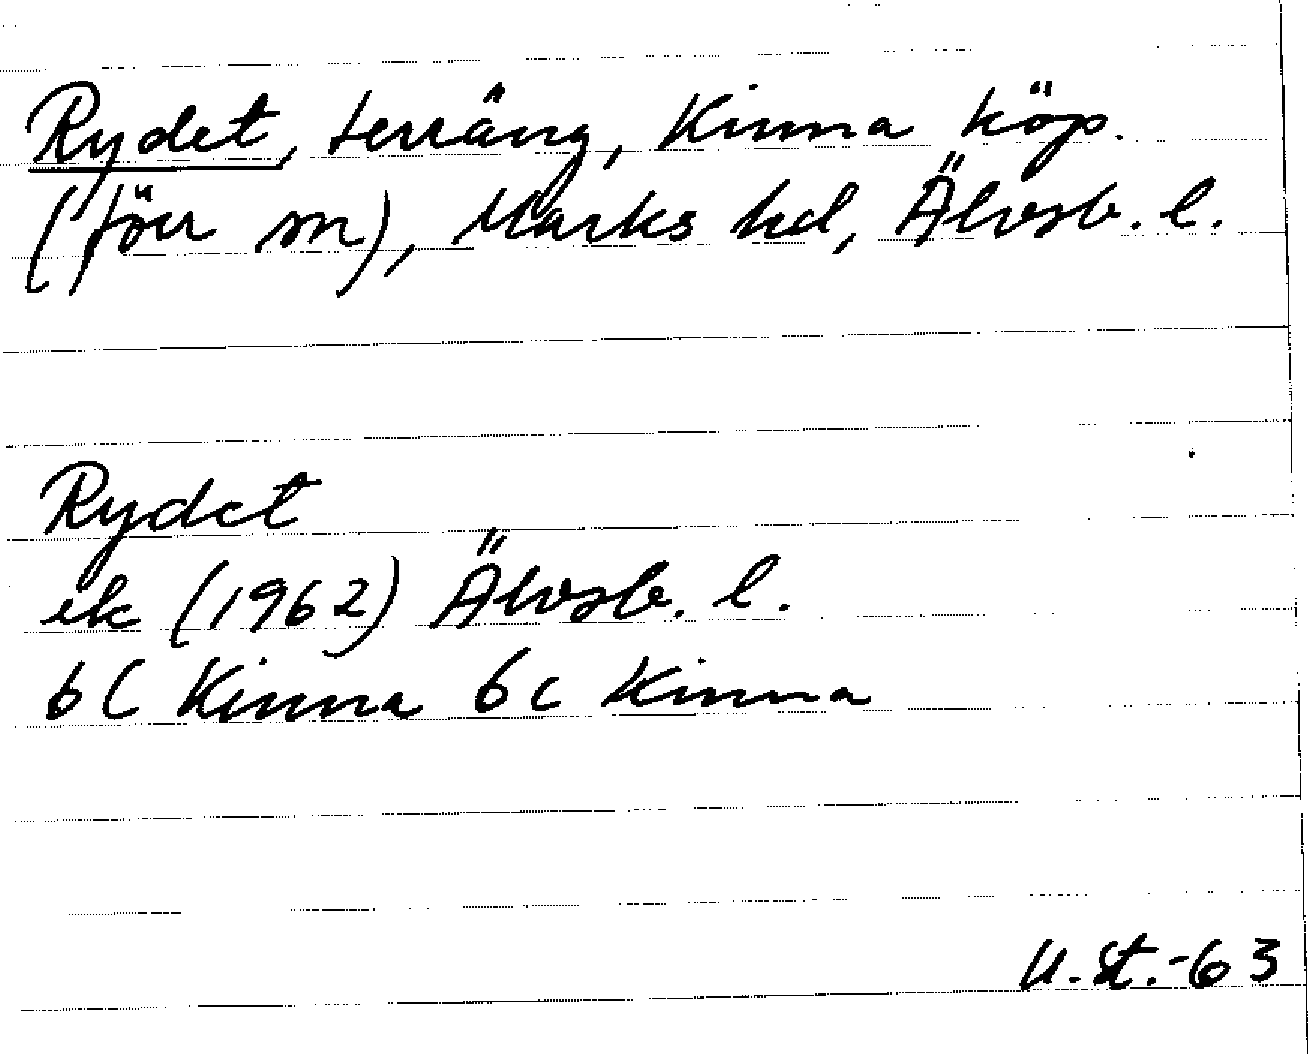 Rydet, terräng, Kinna köp.
(förr sn), Marks hd, Älvsb. l.
Rydet
ek (1962) Älvsb. l.
6C Kinna 6c Kinna
U.St.-63